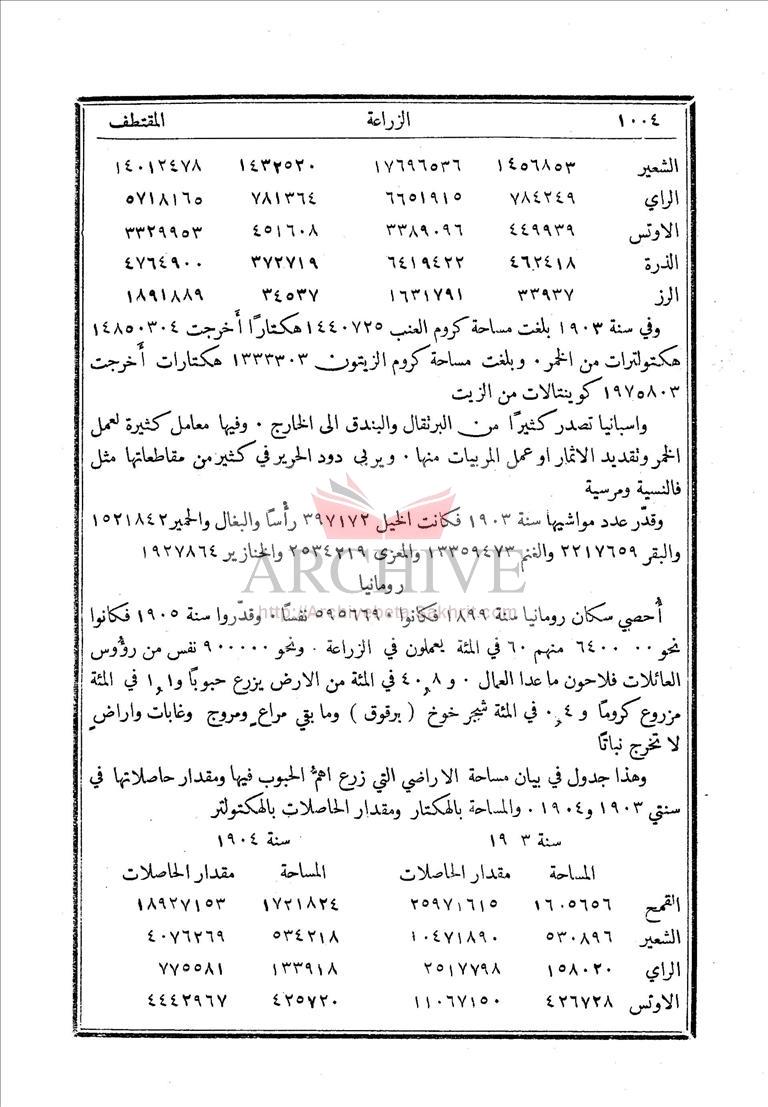 ١٠٠٤ الزراعة المقتطف
الشعير ١٤٥٦٨٥٣ ١٧٦٩٦٥٣٦ ١٤٣٢٥٢٠ ١٤٠١٢٤٧٨
الراي ٧٨٤٢٤٩ ٦٦٥١٩١٥ ٧٨١٣٦٤ ٥٧١٨١٦٥
الاوتس ٤٤٩٩٣٩ ٣٣٨٩٠٩٦ ٤٥١٦٠٨ ٣٣٢٩٩٥٣
الذرة ٤٦٢٤١٨ ٦٤١٩٤٢٢ ٣٧٢٧١٩ ٤٧٦٤٩٠٠
الرز ٣٣٩٣٧ ١٦٣١٧٩١ ٣٤٥٣٧ ١٨٩١٨٨٩
وفي سنة ١٩٠٣ بلغت مساحة كروم العنب ١٤٤٠٧٢٥ هكتارًا أخرجت ١٤٨٥٠٣٠٤
هكتولترات من الخمر ٠ وبلغت مساحة كروم الزيتون ١٣٣٣٣٠٣ هكتارات أخرجت
١٩٧٥٨٠٣ كوينتالات من الزيت
واسبانيا تصدر كثيرًا من البرتقال والبندق الى الخارج ٠ وفيها معامل كثيرة لعمل
الخمر وتقديد الاثمار او عمل المربيات منها ٠ ويربى دود الحرير في كثير من مقاطعاتها مثل
فالنسية ومرسية
وقدّر عدد مواشيها سنة ١٩٠٣ فكانت الخيل ٣٩٧١٧٢ رأسًا والبغال والحمير ١٥٢١٨٤٢
والبقر ٢٢١٧٦٥٩ والغنم ١٣٣٥٩٤٧٣ والمعزى ٢٥٣٤٢١٩ والخنازير ١٩٢٧٨٦٤
ARCHIVE
رومانيا
http://Archivebeta.Sakhrit.com
أُحصي سكان رومانيا سنة ١٨٩٩ فكانوا ٥٩٥٦٦٩٠ نفسًا ٠ وقدّروا سنة ١٩٠٥ فكانوا
نحو ٦٤٠٠٠٠٠ منهم ٦٠ في المئة يعملون في الزراعة ٠ ونحو ٩٠٠٠٠٠ نفس من رؤوس
العائلات فلاحون ما عدا العمال ٠ و ٤٠٫٨ في المئة من الارض يزرع حبوبًا و١٫١ في المئة
مزروع كرومًا و ٠٫٤ في المئة شجر خوخ ( برقوق ) وما بقي مراعٍ ومروج وغابات واراضٍ
لا تخرج نباتًا
وهذا جدول في بيان مساحة الاراضي التي زرع اهمُّ الحبوب فيها ومقدار حاصلاتها في
سنتي ١٩٠٣ و١٩٠٤ ٠ والمساحة بالهكتار ومقدار الحاصلات بالهكتولتر
سنة ٣ ١٩ سنة ١٩٠٤
المساحة مقدار الحاصلات المساحة مقدار الحاصلات
القمح ١٦٠٥٦٥٦ ٢٥٩٧١٦١٥ ١٧٢١٨٢٤ ١٨٩٢٧١٥٣
الشعير ٥٣٠٨٩٦ ١٠٤٧١٨٩٠ ٥٣٤٢١٨ ٤٠٧٦٢٦٩
الراي ١٥٨٠٢٠ ٢٥١٧٧٩٨ ١٣٣٩١٨ ٧٧٥٥٨١
الاوتس ٤٢٦٧٢٨ ١١٠٦٧١٥٠ ٤٢٥٧٢٠ ٤٤٤٢٩٦٧